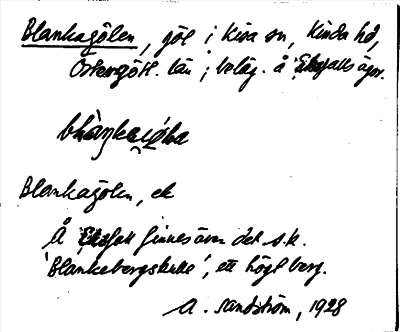 Blankagölen, göl i Kisa sn, Kinda hd,
Östergötl. län; beläg. å Ekefalls ägor.
Blankagölen, ek
Å Ekefall finnes även det s.k.
'Blankebergskulle', ett högt berg.
A. Sandström, 1928